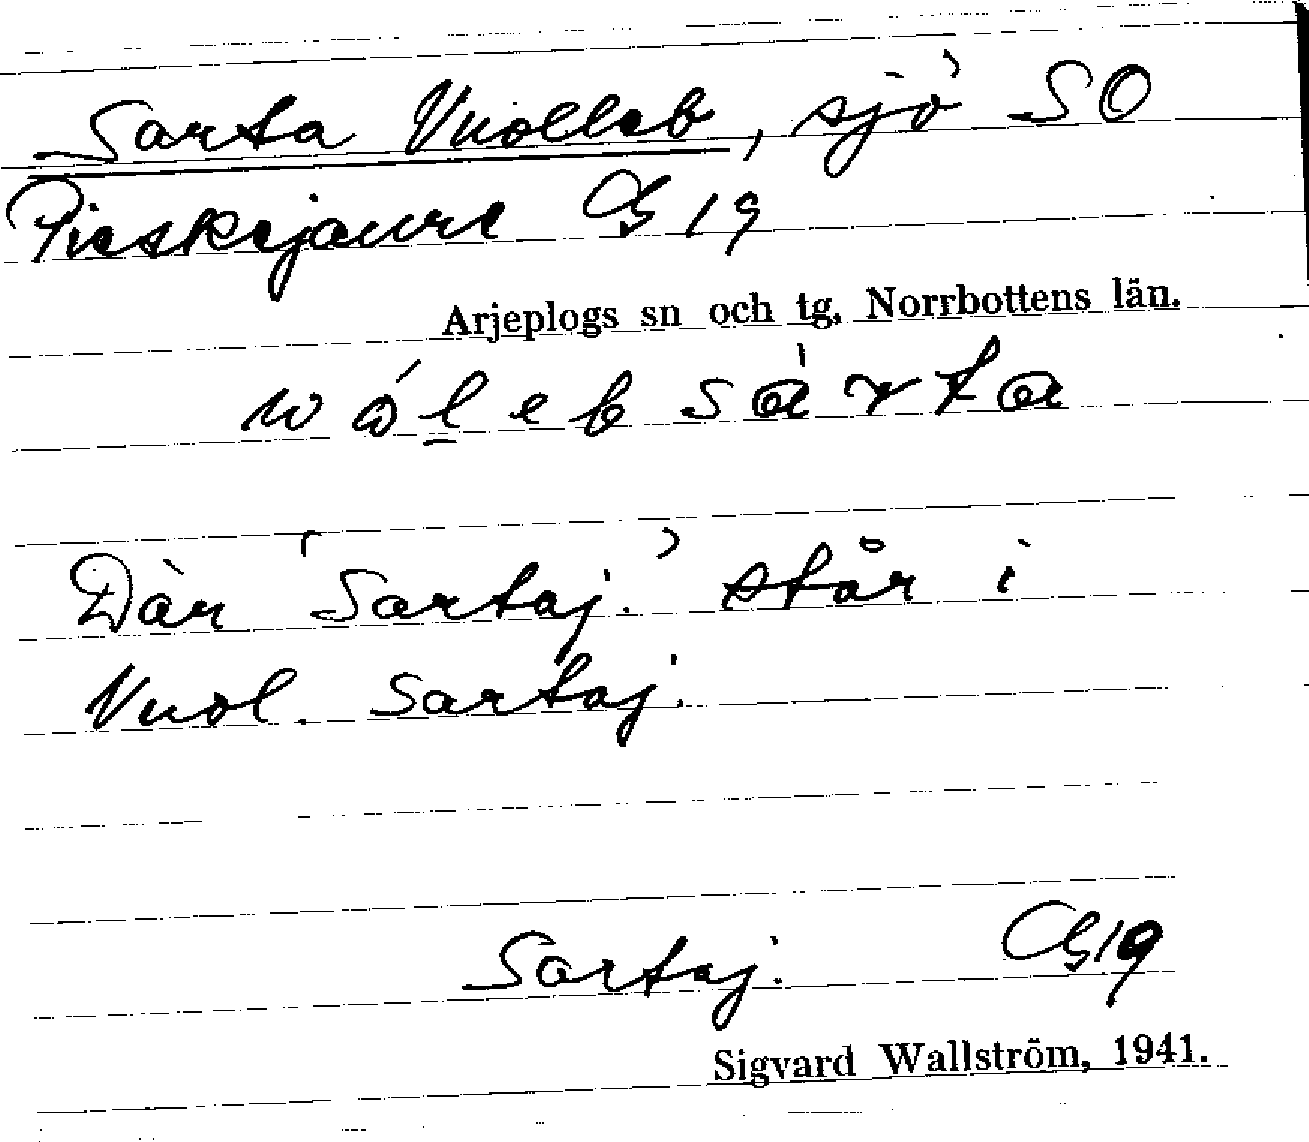 Sarta Vuolleb, sjö SO
Pieskejaure G 19
Arjeplogs sn och tg, Norrbottens län.
wólebsárta
Där 'Sartaj.' står i
Vuol. Sartaj.
Sartaj. G19
Sigvard Wallström, 1941.